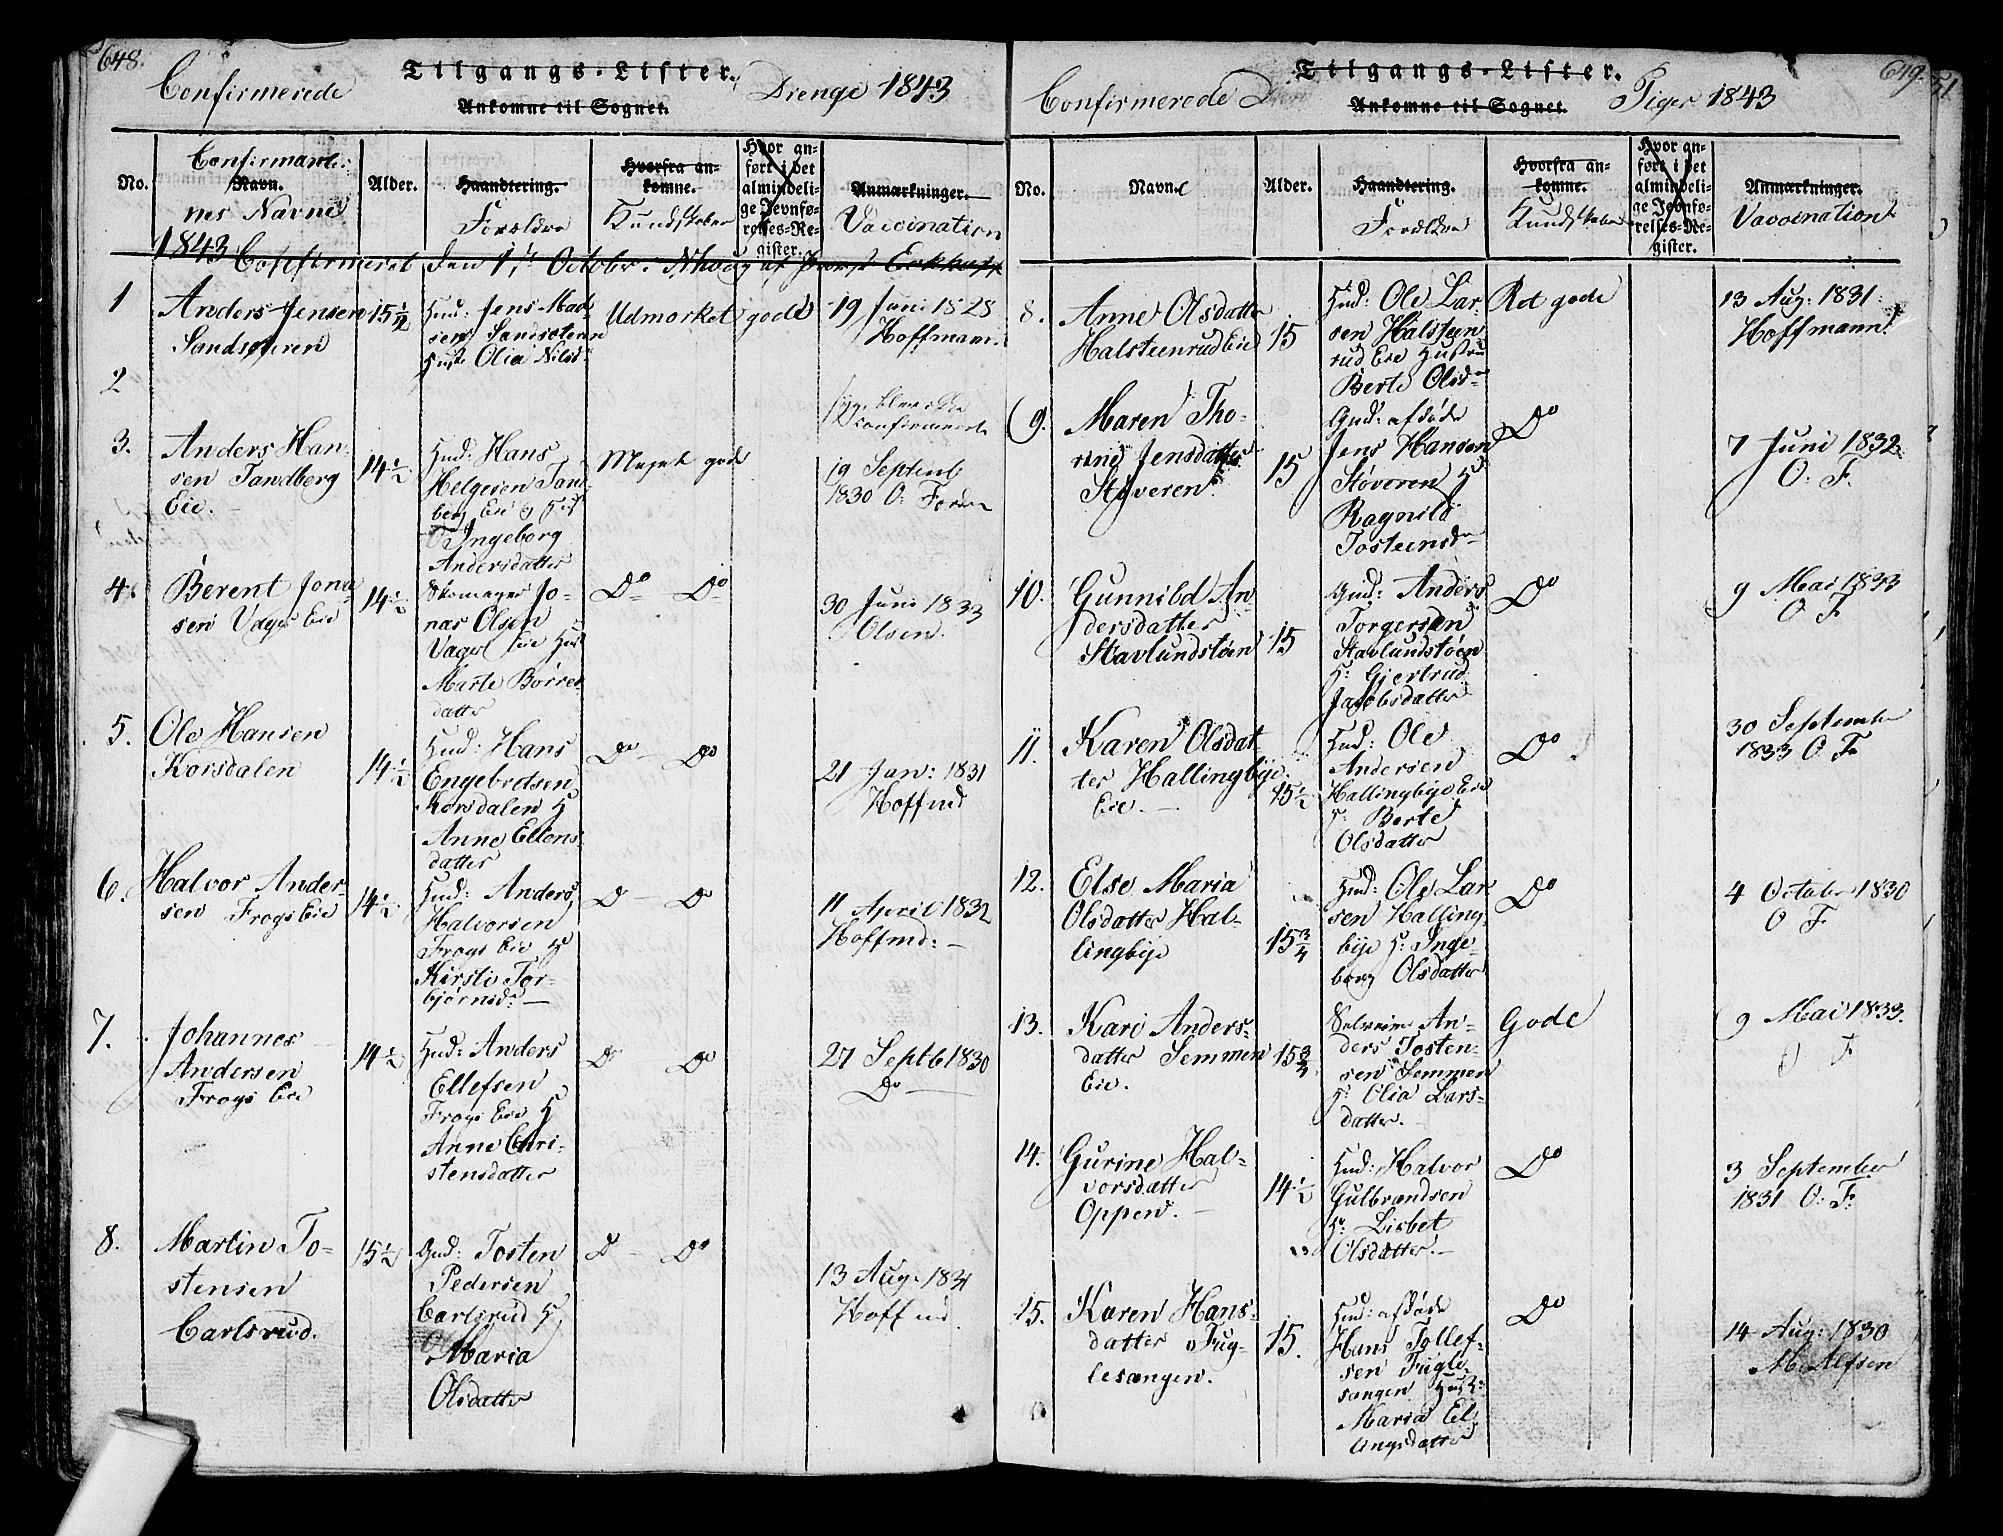 648.
Confirmerede Tilgangs-Lister. Drenge 1843
Ankomne til Sognet.
No. Navn. Alder. Haandtering. Hvorfra ankomne. Hvor anført i det almindelige Jevnførelses-Register. Anmærkninger.
Confirmanternes Navne Forældre Kundskaber Vaccination
1843 Confirmeret den 1ste October i
1
Anders Jensen
Sandsøteren
15 1/2
Hud: Jens Mad-
sen Sandsøteren
Olia Nilsd
Udmærket godt
19 Juni 1828
Hoffmann.
2
confirmerede
3.
Anders Han-
sen Tandberg
Eie.
14 1/2
Hud: Hans
Helgesen Tand-
berg Eie
Ingeborg
Andersdatter
Meget god
19 Septemb
1830 O:
4.
Berent Jona-
sen Vager Eie
14 1/2
Skomager Jo-
nas Olsen
Vager Eie Hus
Marte Börres-
datter
Do Do
30 Juni 1833
Olsen.
5.
Ole Hansen
Korsdalen
14 1/2
Hud: Hans
Engebretsen
Korsdalen H
Anne Ellens-
datter
Do — Do
21 Jan: 1831
Hoffmd
6.
Halvor Ander-
sen Frogs Eie
14 1/2
Hud: Anders
Halvorsen
Frogs Eie H
Kirsti Tor-
bjørnsd: —
Do — Do
11 April 1832
Hoffmd: —
7.
Johannes
Andersen
Frogs Eie
14 1/2
Hud: Anders
Ellefsen
Frogs Eie H
Anne Chri-
stensdatter
Do Do
27 Septb 1830
Do
8.
Martin To-
stensen
Carlsrud.
15 1/2
Gud: Tosten
Pedersen
Carlsrud H
Maria
Olsdatter
Do — Do
13 Aug: 1831
Hoffmd
649.
51
Confirmerede Tilgangs-Lister. Piger 1843
Ankomne til Sognet.
No. Navne Alder. Haandtering. Hvorfra ankomne. Hvor anført i det almindelige Jevnførelses-Register. Anmærkninger.
Forældre Kundskaber Vaccination
8.
Anne Olsdatter
Halsteenrud Eie
15
Hud: Ole Lar-
sen Halsteen-
rud Eie Hustru
Berte Olsdr
Ret gode
13 Aug: 1831.
Hoffmann
9.
Maren Tho-
rine Jensdatter
Støveren.
15
Gud: afdöde
Jens Hansen
Støveren H
Ragnild
Tosteensdr
Do
7 Juni 1832
O. F.
10.
Gunnild An-
dersdatter
Stavlundstøen
15
Gud: Anders
Torgersen
Stavlundstøen
H: Gjertrud
Jacobsdatter
Do
9 Mai 1833
O F
11.
Karen Olsdat-
ter Hallingbye
Eie. —
15 1/2
Hud: Ole
Andersen
Hallingbye Eie
H: Berte
Olsdatter
Do
30 Septembr
1833 O F
12.
Else Maria
Olsdatter Hal-
lingbye
15 3/4
Hud: Ole Lar-
sen Halling-
bye H: Inge-
borg Olsdatter
Do
4 October 1830
O F
13.
Kari Anders-
datter Semmen
Eie.
15 3/4
Selveier An-
ders Tosten-
sen Semmen
H: Olia Lars-
datter.
Gode
9 Mai 1833.
O F
14.
Gurine Hal-
vorsdatter
Oppen. —
14 1/2
Hud: Halvor
Gulbrandsen
H: Lisbet
Olsdatter. —
Do
3 September
1831 O. F.
15.
Karen Hans-
datter Fug-
lesangen.
15.
Hud: afdöde
Hans Tollef-
sen Fugle-
sangen Hust:
Maria El-
lingsdatter
Do
14 Aug: 1830
M Alfsen